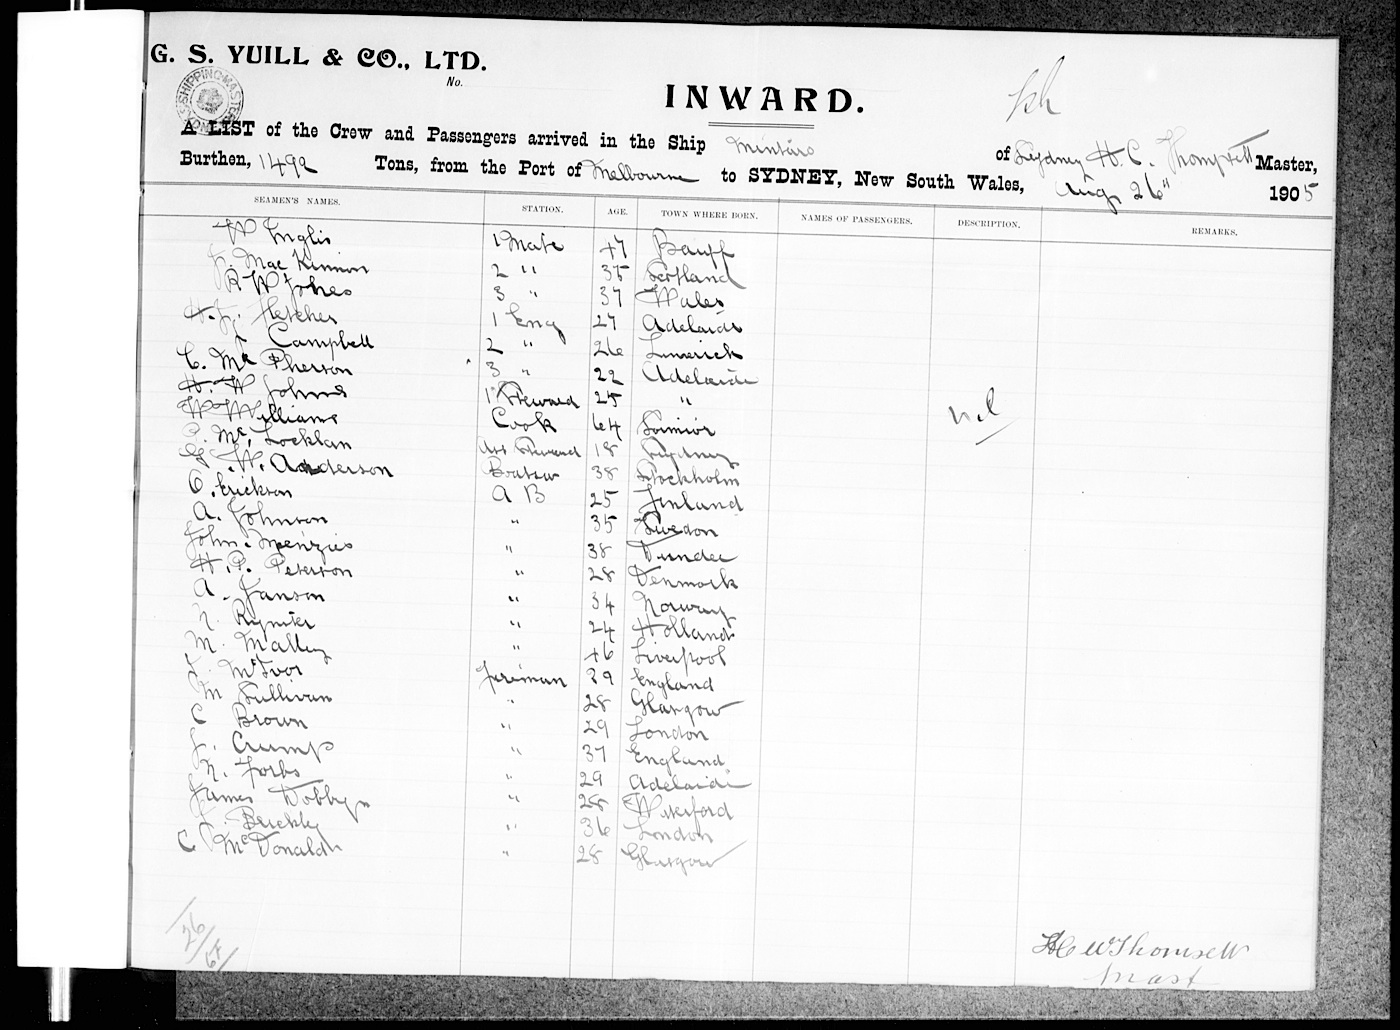 G. S. YUILL & CO., LTD.
No.
INWARD.
A LIST of the Crew and Passengers arrived in the Ship Mintaro of Sydney H. C. Thompsett Master,
Burthen, 1492 Tons, from the Port of Melbourne to SYDNEY, New South Wales, Aug 26" 1905
SEAMEN'S NAMES. STATION. AGE. TOWN WHERE BORN. NAMES OF PASSENGERS. DESCRIPTION. REMARKS.
W Inglis 1 Mate 47 Banff
J. Mac Kinnon 2 " 35 Scotland
R W Jones 3 " 37 Wales
H. J. Fletcher 1 Eng 27 Adelaide
J Campbell 2 " 26 Limerick
C. Mc Pherson 3 " 22 Adelaide
H. W Johns 1 Steward 25 "
W Williams Cook 64
P. Mc Locklan Ast Steward 18 Sydney
G. W. Anderson Boatsw 38 Stockholm
C. Erickson A B 25 Finland
A. Johnson " 35 Sweden
John Menzies " 38 Dundee
H. P. Peterson " 28 Denmark
A. Janson " 34 Norway
N. " 24 Holland
M. Malley " 46 Liverpool
J. McIvor Fireman 39 England
M Sullivan " 28 Glasgow
C Brown " 29 London
J. Crump " 37 England
N. Forbs " 29 Adelaide
James Dobbyn " 28 Waterford
J. Buckley " 36 London
C McDonald " 28 Glasgow
nil
26/
H C W Thomsett
Mast